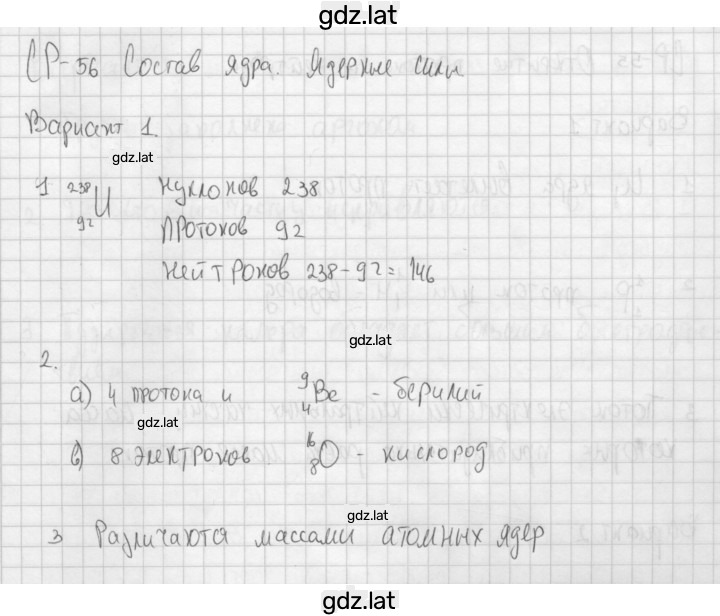 gdz.lat
СР-56 Состав ядра. Ядерные силы
Вариант 1.
gdz.lat
1 ²³⁸₉₂U Нуклонов 238
Протонов 92
Нейтронов 238-92=146
gdz.lat
2.
а) 4 протона и ⁹₄Be - берилий
gdz.lat
в) 8 электронов ¹⁶₈O - кислород
gdz.lat
3 Различаются массами атомных ядер
gdz.lat